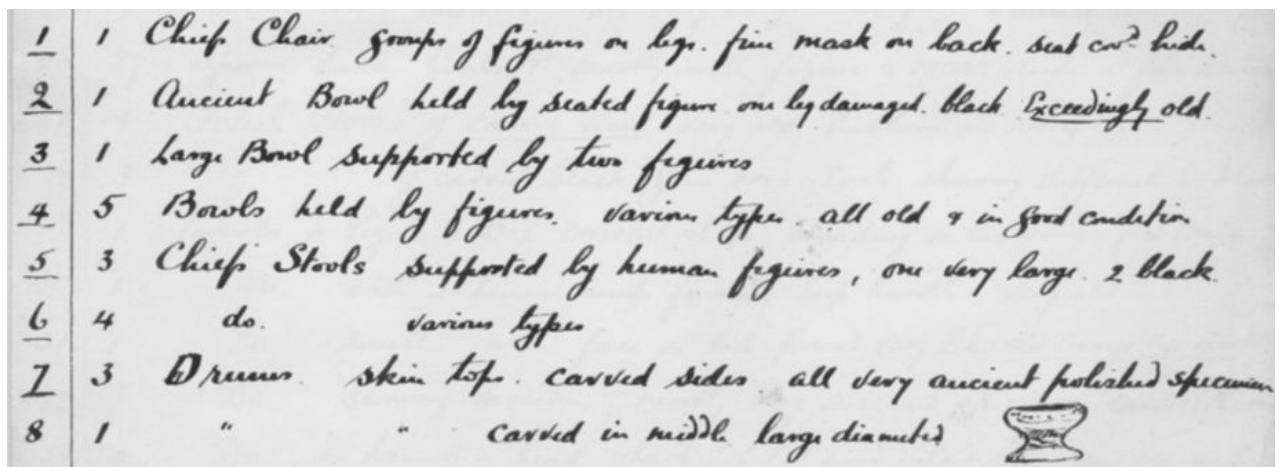 1 1 Chiefs Chair. groups of figures on legs. fine mask on back. seat covd hide.
2 1 Ancient Bowl held by seated figure one leg damaged. black Exceedingly old.
3 1 Large Bowl supported by two figures
4 5 Bowls held by figures. various types. all old & in good condition
5 3 Chiefs Stools supported by human figures, one very large. 2 black.
6 4 do. various types
7 3 Drums. skin tops. carved sides all very ancient polished specimen
8 1 " " carved in middle large diameted